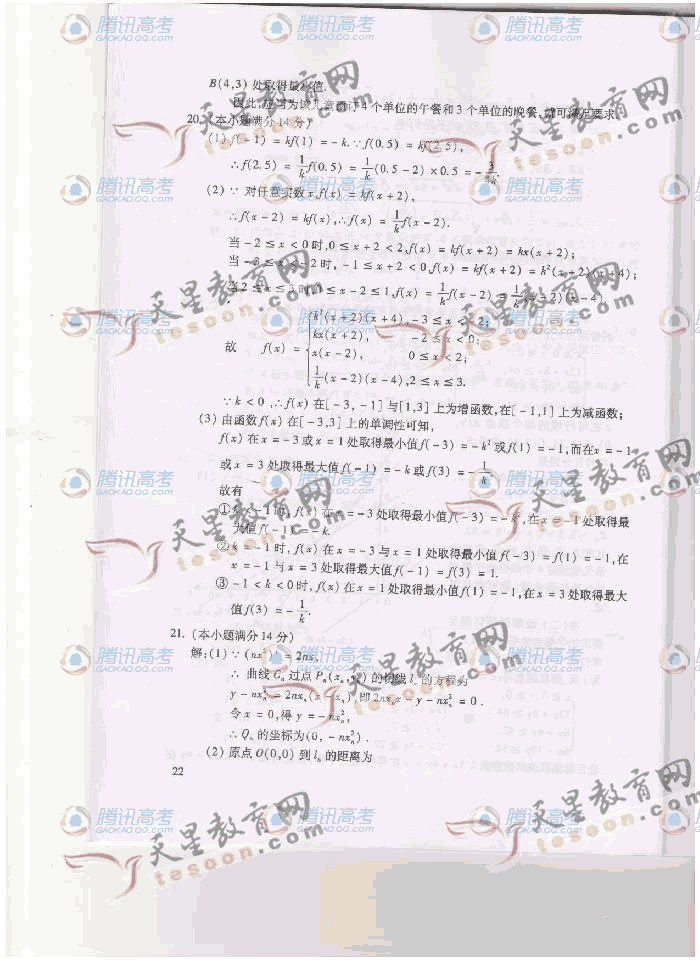 B(4,3) 处取得最小值.
因此,应当为该儿童预订4个单位的午餐和3个单位的晚餐,就可满足要求.
20.(本小题满分14分)
(1) f(-1) = kf(1) = -k. ∵ f(0.5) = kf(2.5),
∴ f(2.5) = 1/k f(0.5) = 1/k (0.5 - 2) × 0.5 = - 3/4k.
(2) ∵ 对任意实数x, f(x) = kf(x+2),
∴ f(x-2) = kf(x), ∴ f(x) = 1/k f(x-2).
当 -2 ≤ x < 0时, 0 ≤ x+2 < 2, f(x) = kf(x+2) = kx(x+2);
当 -3 ≤ x < -2时, -1 ≤ x+2 < 0, f(x) = kf(x+2) = k²(x+2)(x+4);
当 2 ≤ x ≤ 3时, 0 ≤ x-2 ≤ 1, f(x) = 1/k f(x-2) = 1/k (x-2)(x-4)
k²(x+2)(x+4), -3 ≤ x < -2;
kx(x+2), -2 ≤ x < 0;
故 f(x) = x(x-2), 0 ≤ x < 2;
1/k (x-2)(x-4), 2 ≤ x ≤ 3.
∵ k < 0, ∴ f(x) 在[-3, -1]与[1,3]上为增函数,在[-1,1]上为减函数;
(3) 由函数f(x)在[-3,3]上的单调性可知,
f(x)在x = -3或x = 1处取得最小值f(-3) = -k²或f(1) = -1,而在x = -1
或x = 3处取得最大值f(-1) = -k或f(3) = - 1/k.
故有
① k < -1时, f(x)在x = -3处取得最小值f(-3) = -k²,在x = -1处取得最
大值f(-1) = -k.
② k = -1时, f(x)在x = -3与x = 1处取得最小值f(-3) = f(1) = -1,在
x = -1与x = 3处取得最大值f(-1) = f(3) = 1.
③ -1 < k < 0时, f(x)在x = 1处取得最小值f(1) = -1,在x = 3处取得最大
值f(3) = - 1/k.
21.(本小题满分14分)
解:(1) ∵ (nx²)' = 2nx,
∴ 曲线Cₙ过点Pₙ(xₙ,yₙ)的切线lₙ的方程为
y - nxₙ² = 2nxₙ(x - xₙ),即2nxₙx - y - nxₙ² = 0.
令x = 0,得y = -nxₙ²,
∴ Qₙ的坐标为(0, -nxₙ²).
(2) 原点O(0,0)到lₙ的距离为
22
腾讯高考
GAOKAO.QQ.COM
天星教育网
tesoon.com